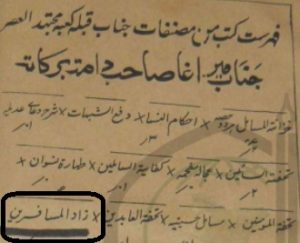 فہرست کتب من مصنفات جناب قبلہ کعبہ مجتہد العصر
جناب میر اغا صاحب دامت برکاتہ
خزانۃ المسائل ہر دو حصہ × احکام النسا × دفع الشبہات × شرح دعای عدیلہ
تحفۃ السائلین × عجالہ مفجعہ × کفایۃ السائلین × طہارۃ نسوان ×
تحفۃ المومنین × مسائل حسینیہ × تحفۃ العابدین × زاد المسافرین